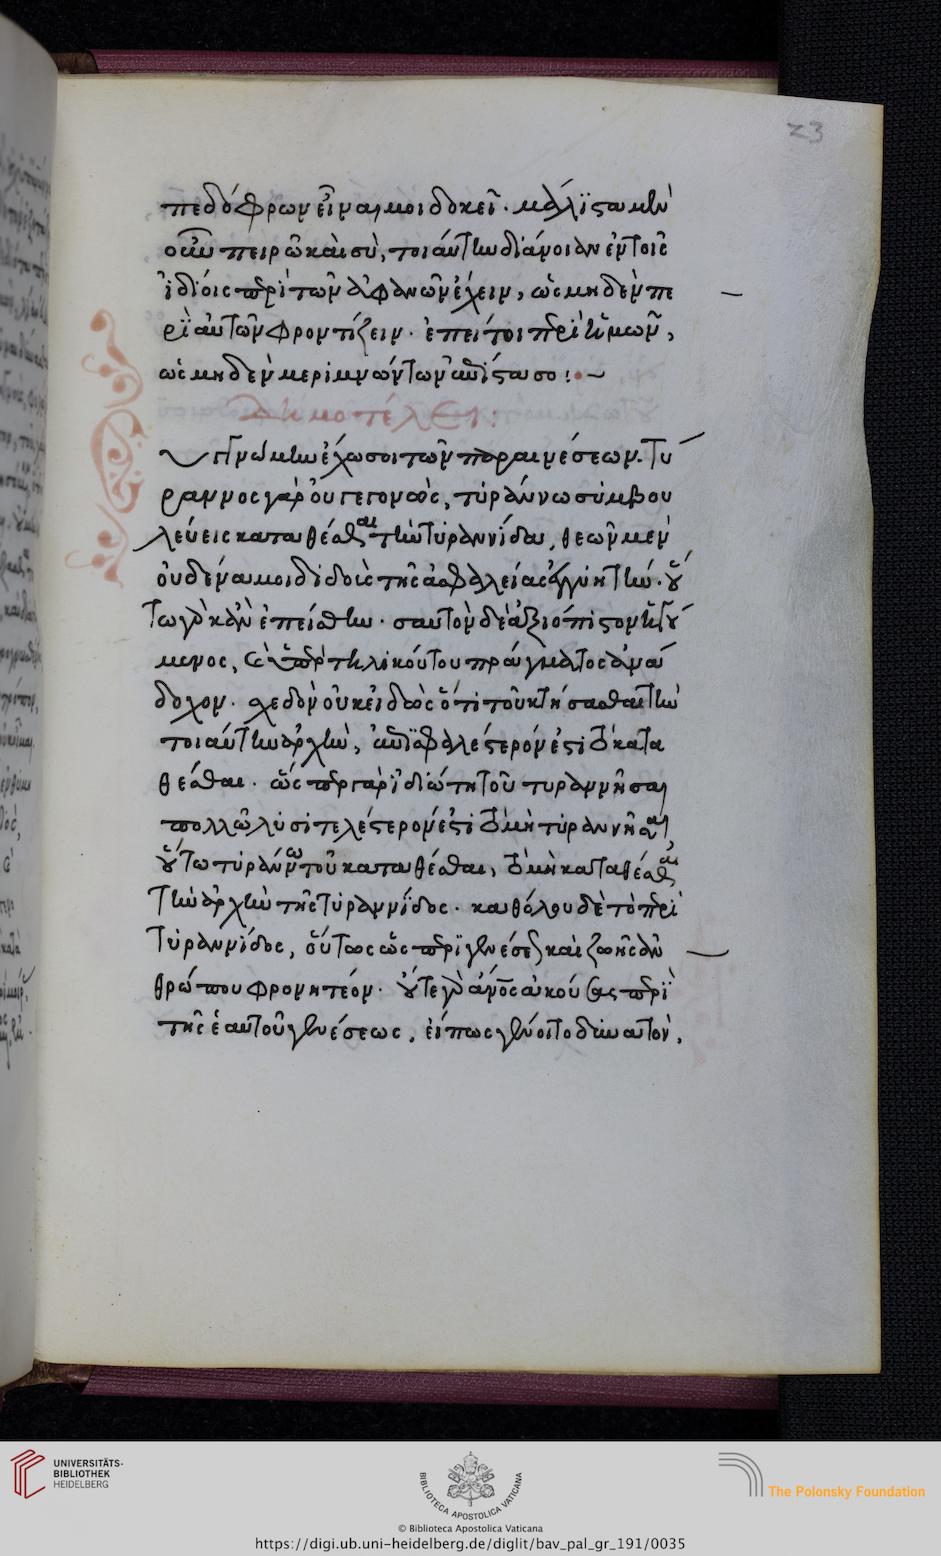 23
πεδόφρων εἶναι μοι δοκεῖ. μάλιστα μὲν
οὖν πειρῶ καὶ σὺ, τοιαύτην διάνοιαν ἐν τοῖς
ἰδίοις περὶ τῶν ἀφανῶν ἔχειν, ὡς μηδὲν πε
ρὶ αὐτῶν φροντίζειν. ἐπεί τοι περὶ ἡμῶν,
ὡς μηδὲν μεριμνώντων ἐπίστασο:
Δημοτέλει:
γνώμην ἔχω σοι τῶν παραινέσεων. Τυ
ραννος γὰρ οὐ γεγονὼς, τυράννω συμβου
λεύεις καταθέσθαι τὴν τυραννίδα, θεῶν μὲν
οὐδένα μοι διδοὺς τῆς ἀσφαλείας ἐγγυητήν. οὕ
τω γὰρ κἂν ἐπείσθην. σαυτὸν δὲ ἀξιόπιστον ἡγού
μενος, ὑπὲρ τηλικούτου πράγματος ἀνά
δοχον. σχεδὸν οὐκ εἰδὼς ὅτι τοῦ κτήσασθαι τὴν
τοιαύτην ἀρχὴν, ἐπισφαλέστερόν ἐστι τὸ κατα
θέσθαι. ὥσπερ γὰρ ἰδιώτη τοῦ τυραννῆσαι
πολλῶ λυσιτελέστερόν ἐστι τὸ μὴ τυραννῆσαι
οὕτω τυράννω τοῦ καταθέσθαι, τὸ μὴ καταθέσθαι
τὴν ἀρχὴν τῆς τυραννίδος. καθόλου δὲ τὸ περὶ
τυραννίδος, οὕτως ὡς περὶ γενέσεως καὶ ζωῆς ἀν
θρώπου φρονητέον. οὔτε γὰρ ἄνος ἀκούσας περὶ
τῆς ἑαυτοῦ γενέσεως, εἴπως γένοιτο δι' αυτὸν,
UNIVERSITÄTS-
BIBLIOTHEK
HEIDELBERG
BIBLIOTECA APOSTOLICA VATICANA
The Polonsky Foundation
© Biblioteca Apostolica Vaticana
https://digi.ub.uni-heidelberg.de/diglit/bav_pal_gr_191/0035